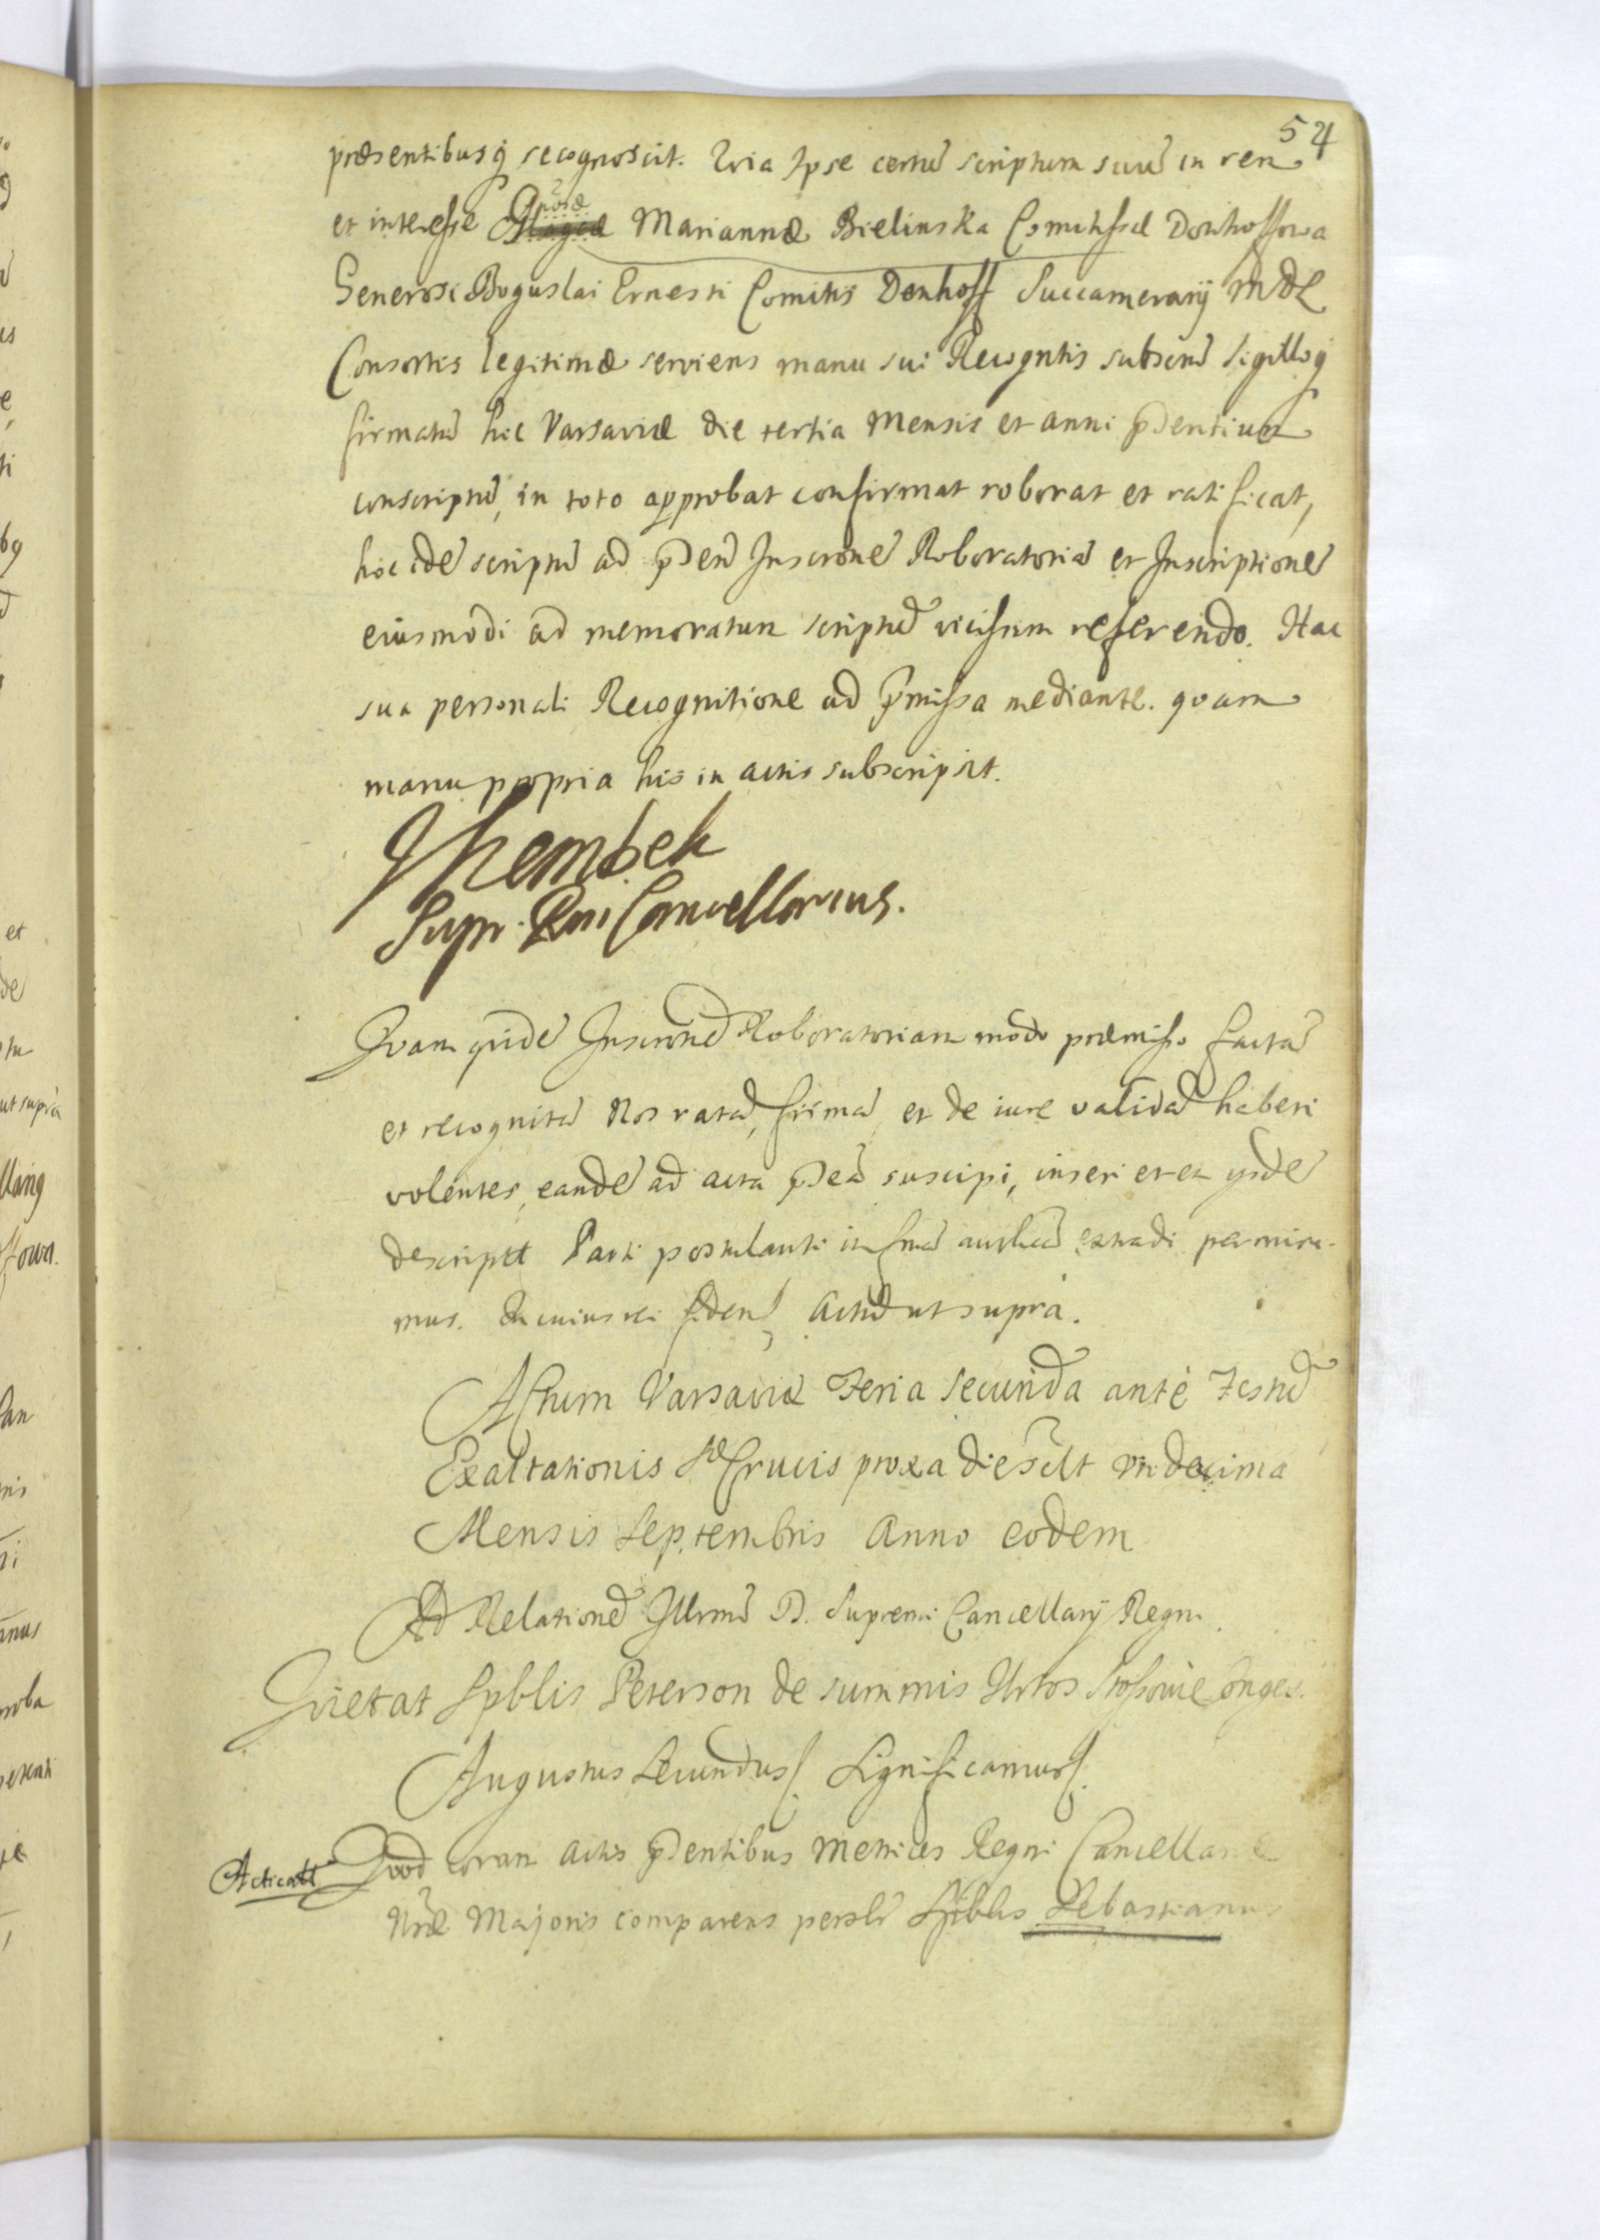 54
præsentibusq recognoscit. Qvia Ipse certu scriptum suu in rem
et interesse Gnosæ Mariannæ Bielinska Comitissæ Donhoffowa
Generosi Boguslai Ernesti Comitis Denhoff Succamerarij MDL
Consortis legitimæ serviens manu sui Recogntis subscru sigilloq
firmatu hic Varsaviæ die tertia Mensis et anni pdentium
conscriptu, in toto approbat confirmat roborat et ratificat,
hoc ide scriptu ad pden Inscrone Roboratoria et Inscriptione
eiusmodi ad memoratum scriptu vicissim referendo. Hac
sua personali Recognitione ad pmissa mediante. quam
manu propria his in actis subscripsit.
JSzembek
Supr. Rni Cancellarius.
Qvam qvide Inscrone Roboratoriam modo præmisso facta
et recognita Nos rata, firma et de iure valida haberi
volentes, eande ad acta pdea suscipi, inseri et ex ysde
descriptt Parti postulanti in fma authca extradi permisi-
mus. In cuius rei fidem Actu ut supra.
Actum Varsaviæ Feria Secunda ante Festu
Exaltationis Sæ Crucis proxa die sclt Undecima
Mensis Septembris Anno eodem
Ad Relatione Illrmi D. Supremi Cancellarij Regni.
Qvietat Spblis Peterson de summis Urtos
Augustus Secundus Significamus
Acticatt Qvod coram Actis pdentibus Metrices Regni Cancellariæ
Nræ Majoris comparens persolr Spblis Sebastianus